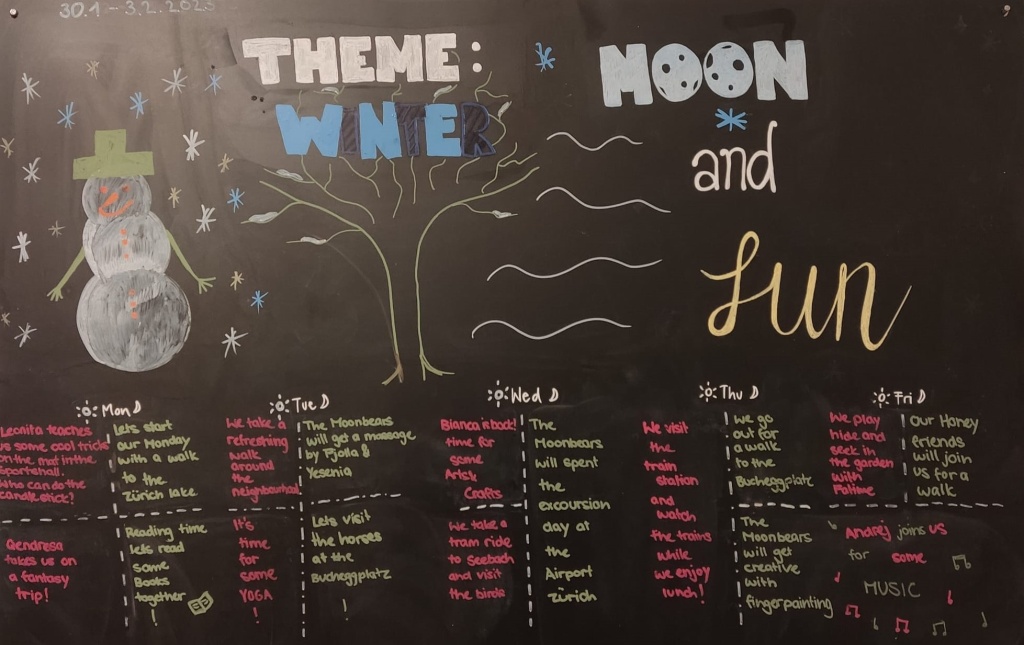 30.1 - 3.2.2023
THEME:
WINTER
MOON
and
Sun
Mon
Leonita teaches
us some cool tricks
on the mat in the
sportshall.
Who can do the
candlestick?
Qendresa
takes us on
a fantasy
trip!
Lets start
our Monday
with a walk
to the
Zürich lake.
Reading time
lets read
some
Books
together
!
Tue
We take a
refreshing
walk
around
the
neighbourhood
It's
time
for
some
YOGA
!
The Moonbears
will get a massage
by Fjolla &
Yesenia
Lets visit
the horses
at the
Bucheggplatz
!
Wed
Bianca is back!
time for
some
Artsy
Crafts
We take a
tram ride
to Seebach
and visit
the birds
The
Moonbears
will spent
the
excoursion
day at
the
Airport
Zürich
Thu
We visit
the
train
station
and
watch
the trains
while
we enjoy
lunch!
We go
out for
a walk
to the
Bucheggplatz
The
Moonbears
will get
creative
with
fingerpainting
Fri
We play
hide and
seek in
the garden
with
Fatime
Our Honey
friends
will join
us for a
walk
Andrej joins us
for some
MUSIC